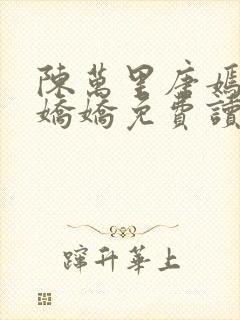 陳萬里唐嫣
嬌嬌免費讀
蹿升華上